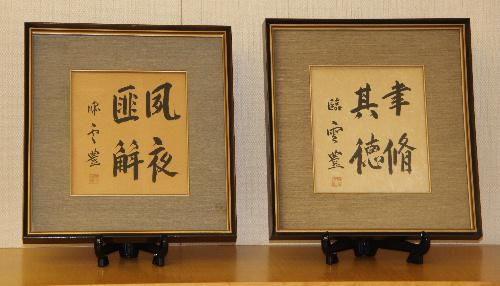 夙夜
匪解
臨雲豐
聿脩
其德
臨雲豐